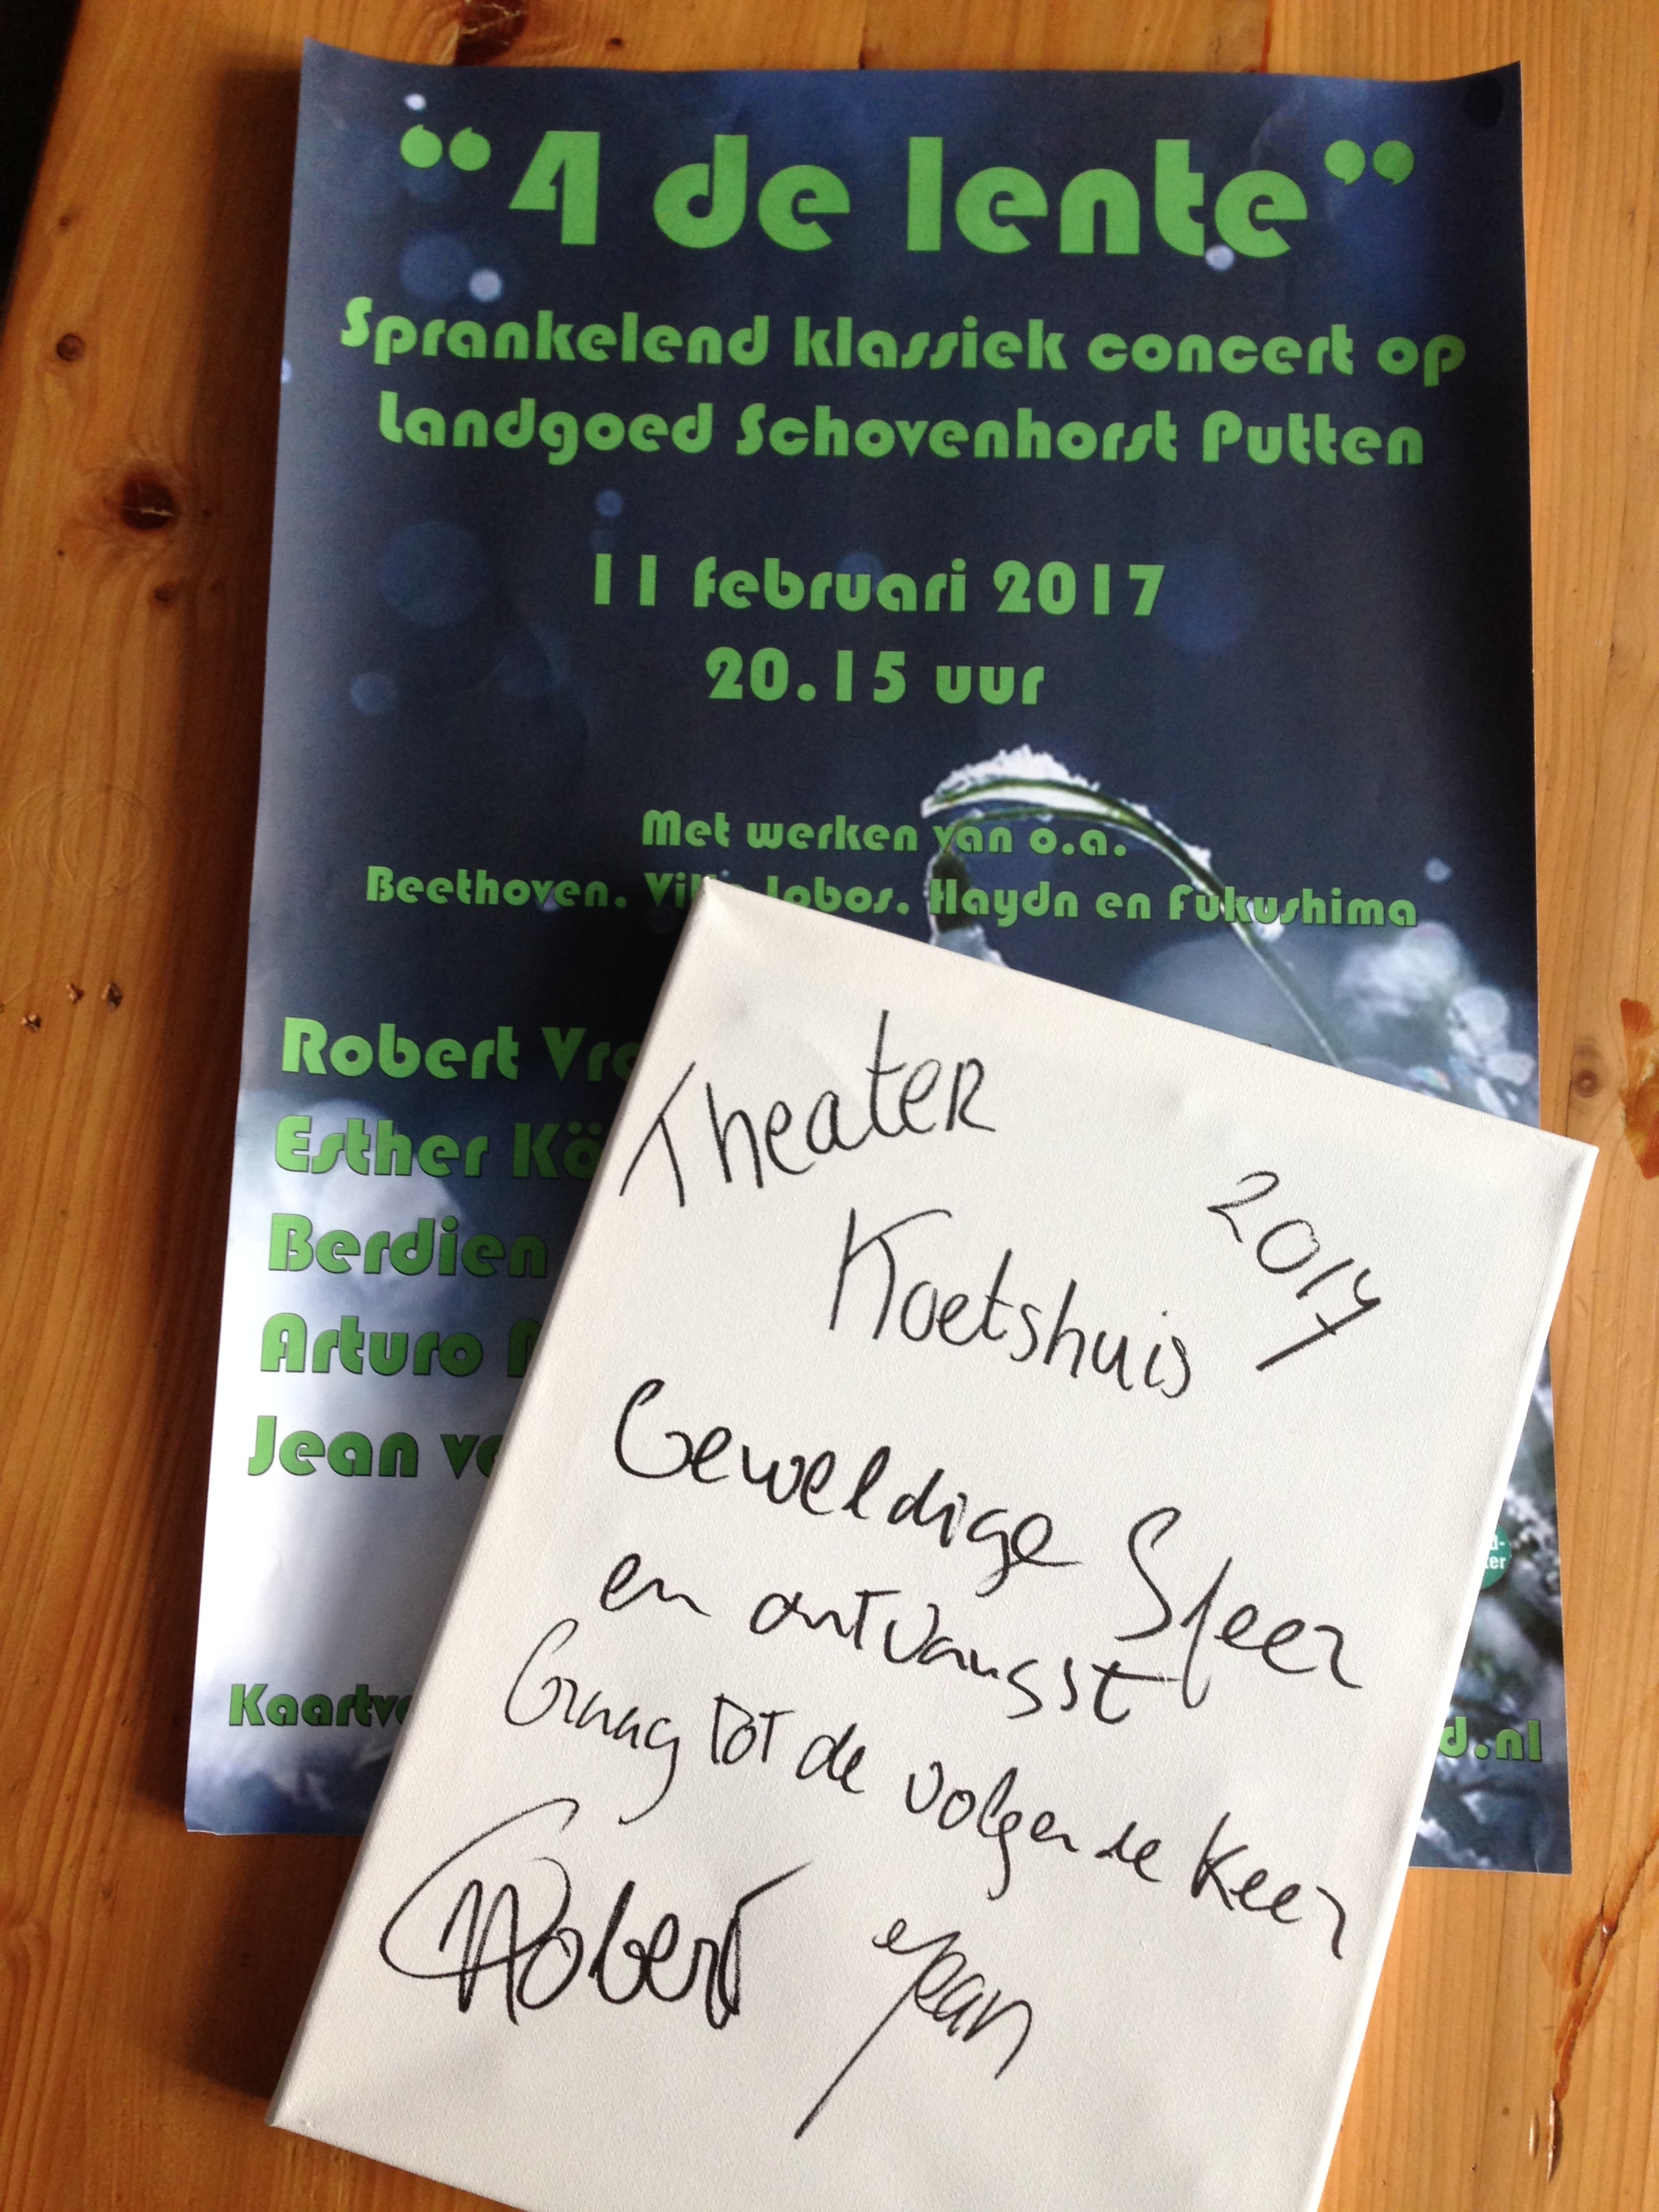 “4 de lente”
Sprankelend klassiek concert op
Landgoed Schovenhorst Putten
11 februari 2017
20.15 uur
Met werken van o.a.
Beethoven, Villa Lobos, Haydn en Fukushima
Robert
Esther
Berdien
Arturo
Jean
d.nl
Theater
Koetshuis
2017
Geweldige Sfeer
en ontvangst
Graag tot de volgende keer
Robert Jean